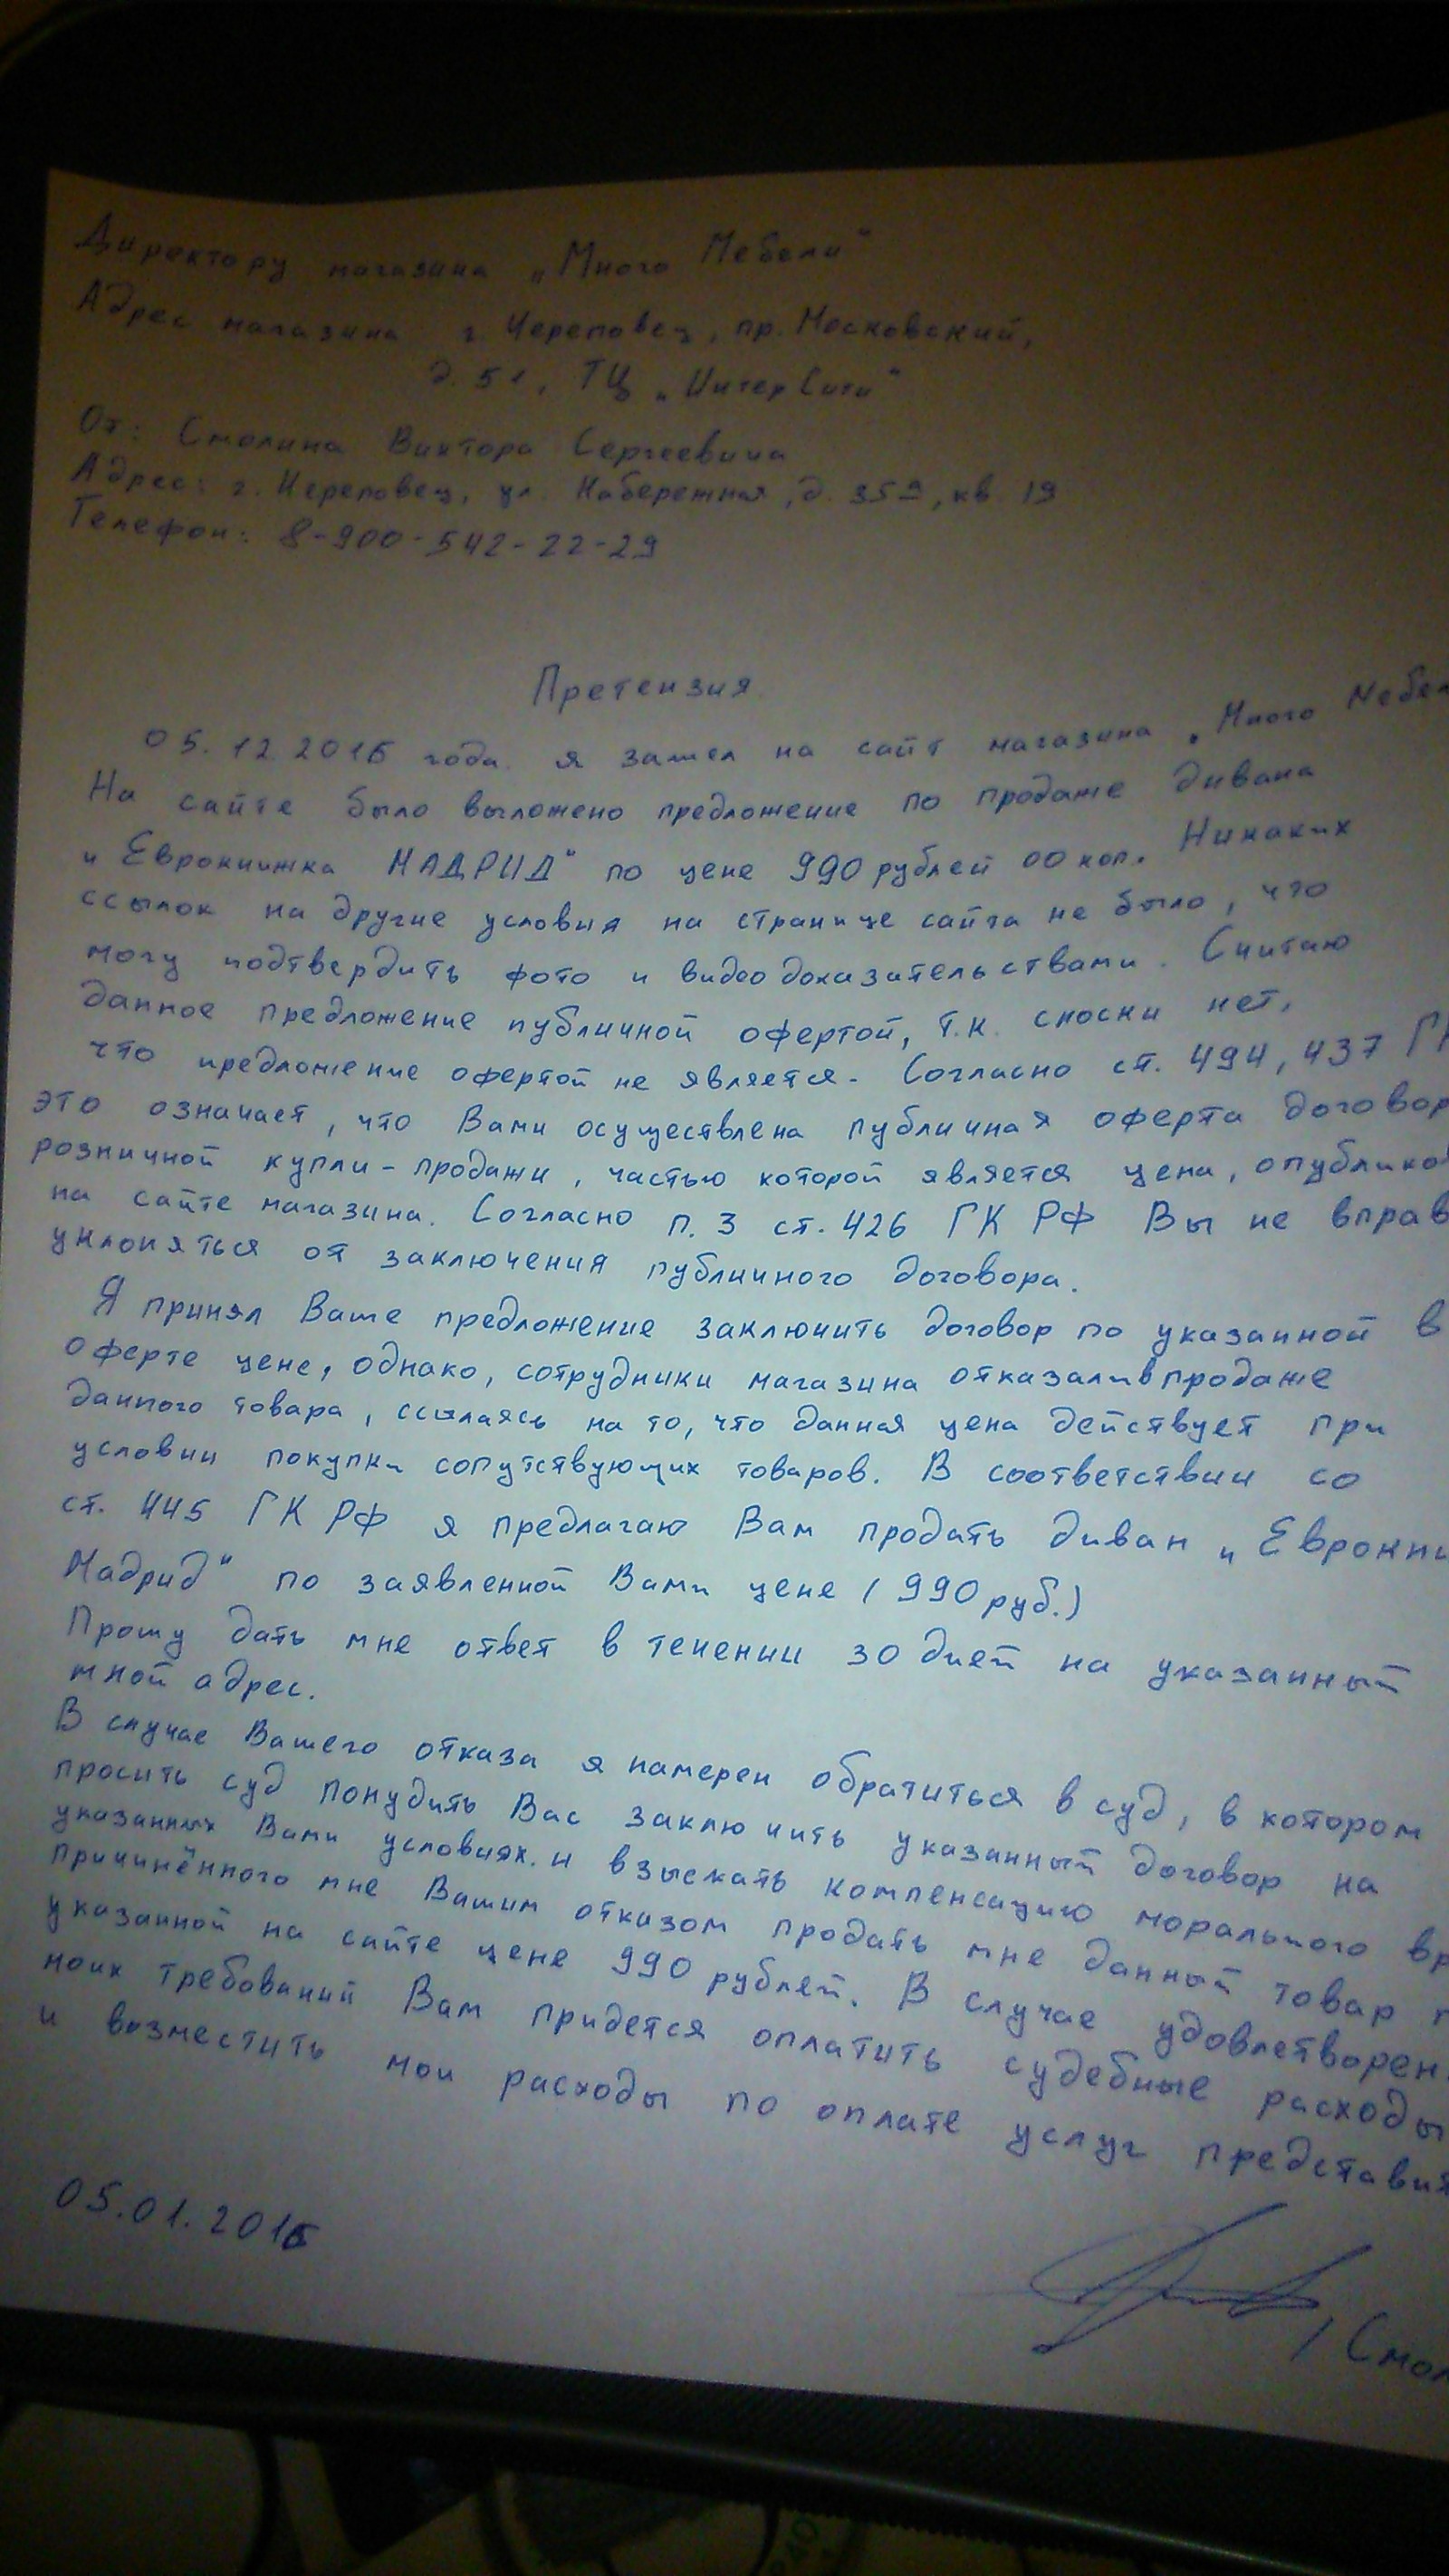 Директору магазина „Много Мебели“
Адрес магазина г. Череповец, пр. Московский,
д. 51, ТЦ „Интер Сити“
От: Смолина Виктора Сергеевича
Адрес: г. Череповец, ул. Набережная, д. 359, кв. 19
Телефон: 8-900-542-22-29
Претензия
05.12.2015 года я зашел на сайт магазина „Много Мебел
На сайте было выложено предложение по продаже дивана
„Еврокнижка МАДРИД“ по цене 990 рублей 00 коп. Никаких
ссылок на другие условия на странице сайта не было, что
могу подтвердить фото и видео доказательствами. Считаю
данное предложение публичной офертой, т.к. сноски нет,
что предложение офертой не является. Согласно ст. 494, 437 ГК
это означает, что Вами осуществлена публичная оферта договор
розничной купли-продажи, частью которой является цена, опубликов
на сайте магазина. Согласно п. 3 ст. 426 ГК РФ Вы не вправ
уклоняться от заключения публичного договора.
Я принял Ваше предложение заключить договор по указанной в
оферте цене, однако, сотрудники магазина отказали в продаже
данного товара, ссылаясь на то, что данная цена действует при
условии покупки сопутствующих товаров. В соответствии со
ст. 445 ГК РФ я предлагаю Вам продать диван „Еврокни
Мадрид“ по заявленной Вами цене (990 руб.)
Прошу дать мне ответ в течении 30 дней на указанный
мной адрес.
В случае Вашего отказа я намерен обратиться в суд, в котором
просить суд понудить Вас заключить указанный договор на
указанных Вами условиях. и взыскать компенсацию морального вр
причинённого мне Вашим отказом продать мне данный товар п
указанной на сайте цене 990 рублей. В случае удовлетворен
моих требований Вам придется оплатить судебные расходы
и возместить мои расходы по оплате услуг представит
05.01.2016
/ Смол